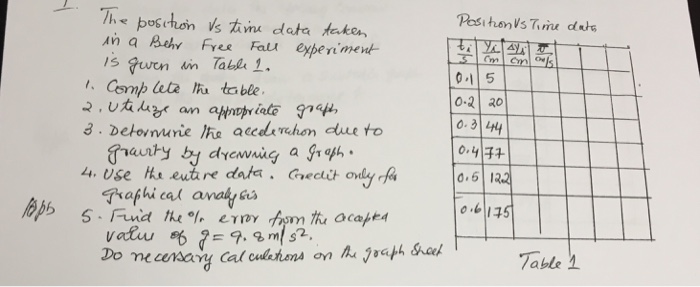 I.
The position Vs time data taken
in a Behr Free Fall experiment
is given in Table 1.
1. Complete the table.
2. Utilize an appropriate graph
3. Determine the acceleration due to
gravity by drawing a graph.
4. Use the entire data. Credit only for
graphical analysis
5. Find the % error from the accepted
value of g = 9.8 m/s².
Do necessary calculations on the graph sheet
Position Vs Time data
ti yi Δyi v̄
s cm cm cm/s
0.1 5
0.2 20
0.3 44
0.4 77
0.5 122
0.6 175
Table 1